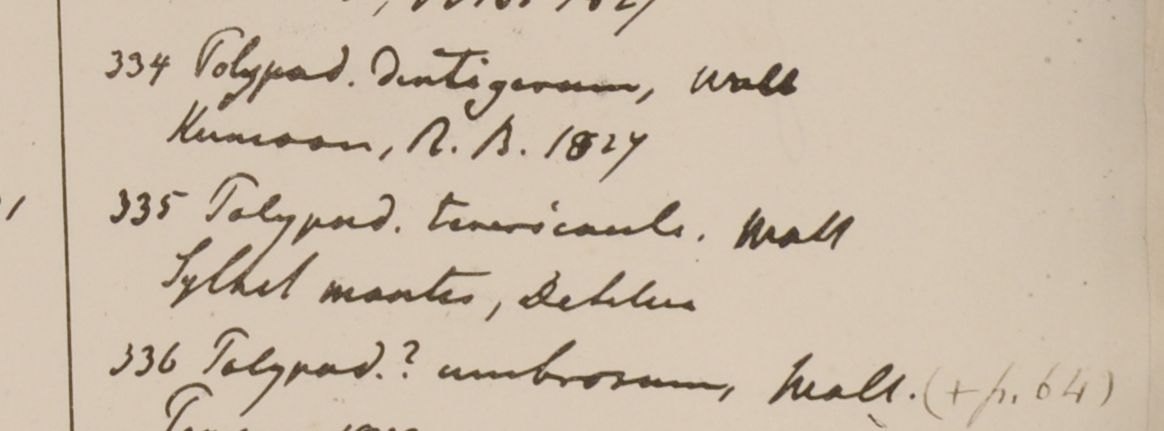 1827
334 Polypod. dentigerum, Wall
Kumaon, R. B. 1827
335 Polypod. tenericaule. Wall
Sylhet montes,
336 Polypod.? umbrosum, Wall. (+ p. 64)